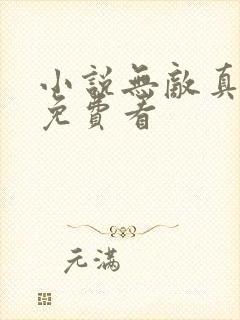 小說無敵真
免費看
元滿